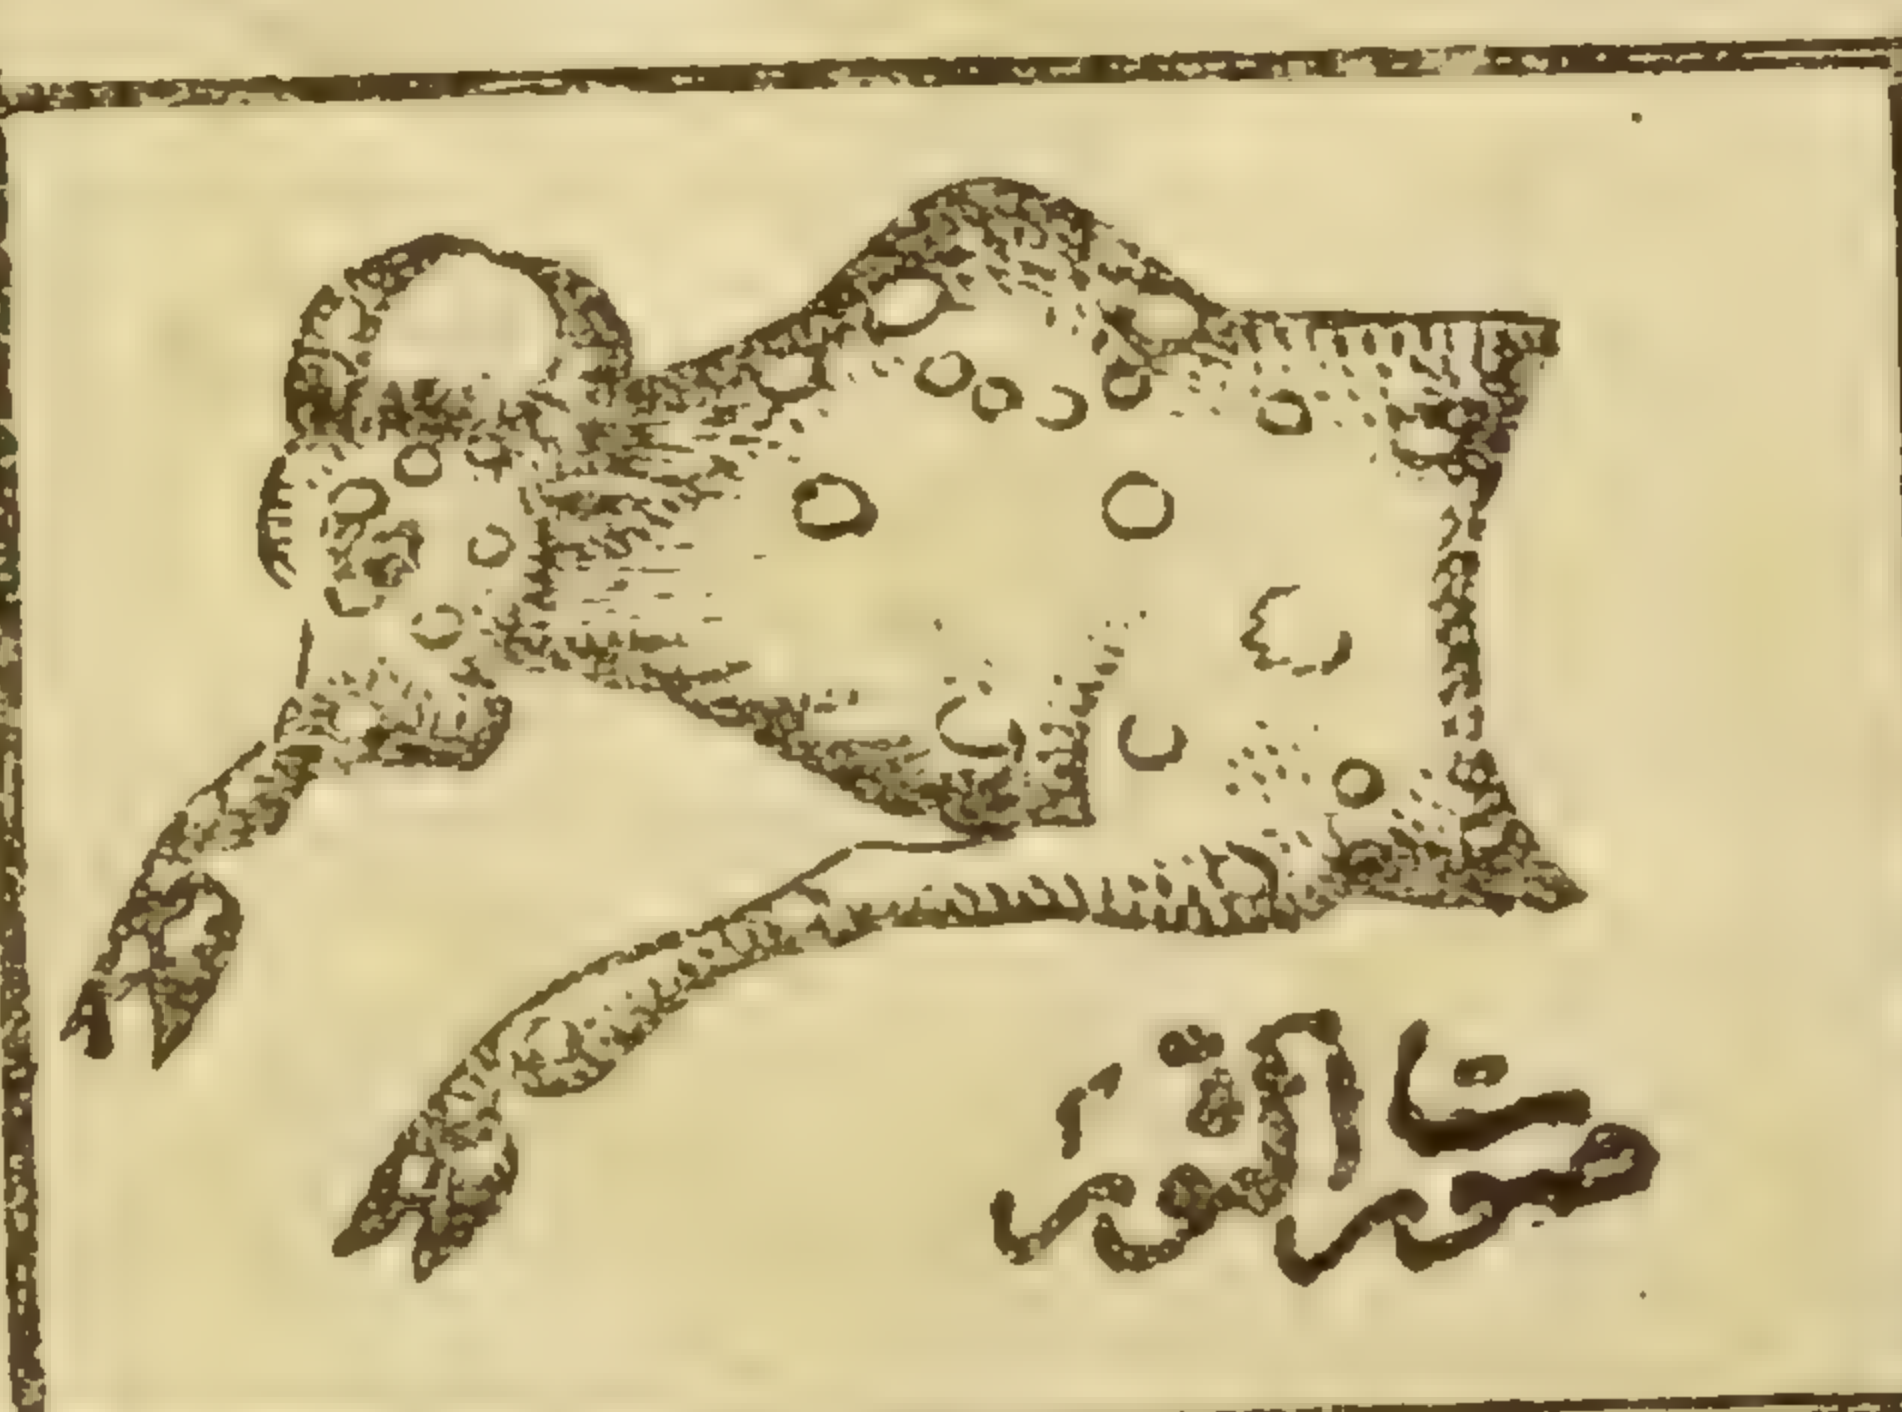 صورت الثور